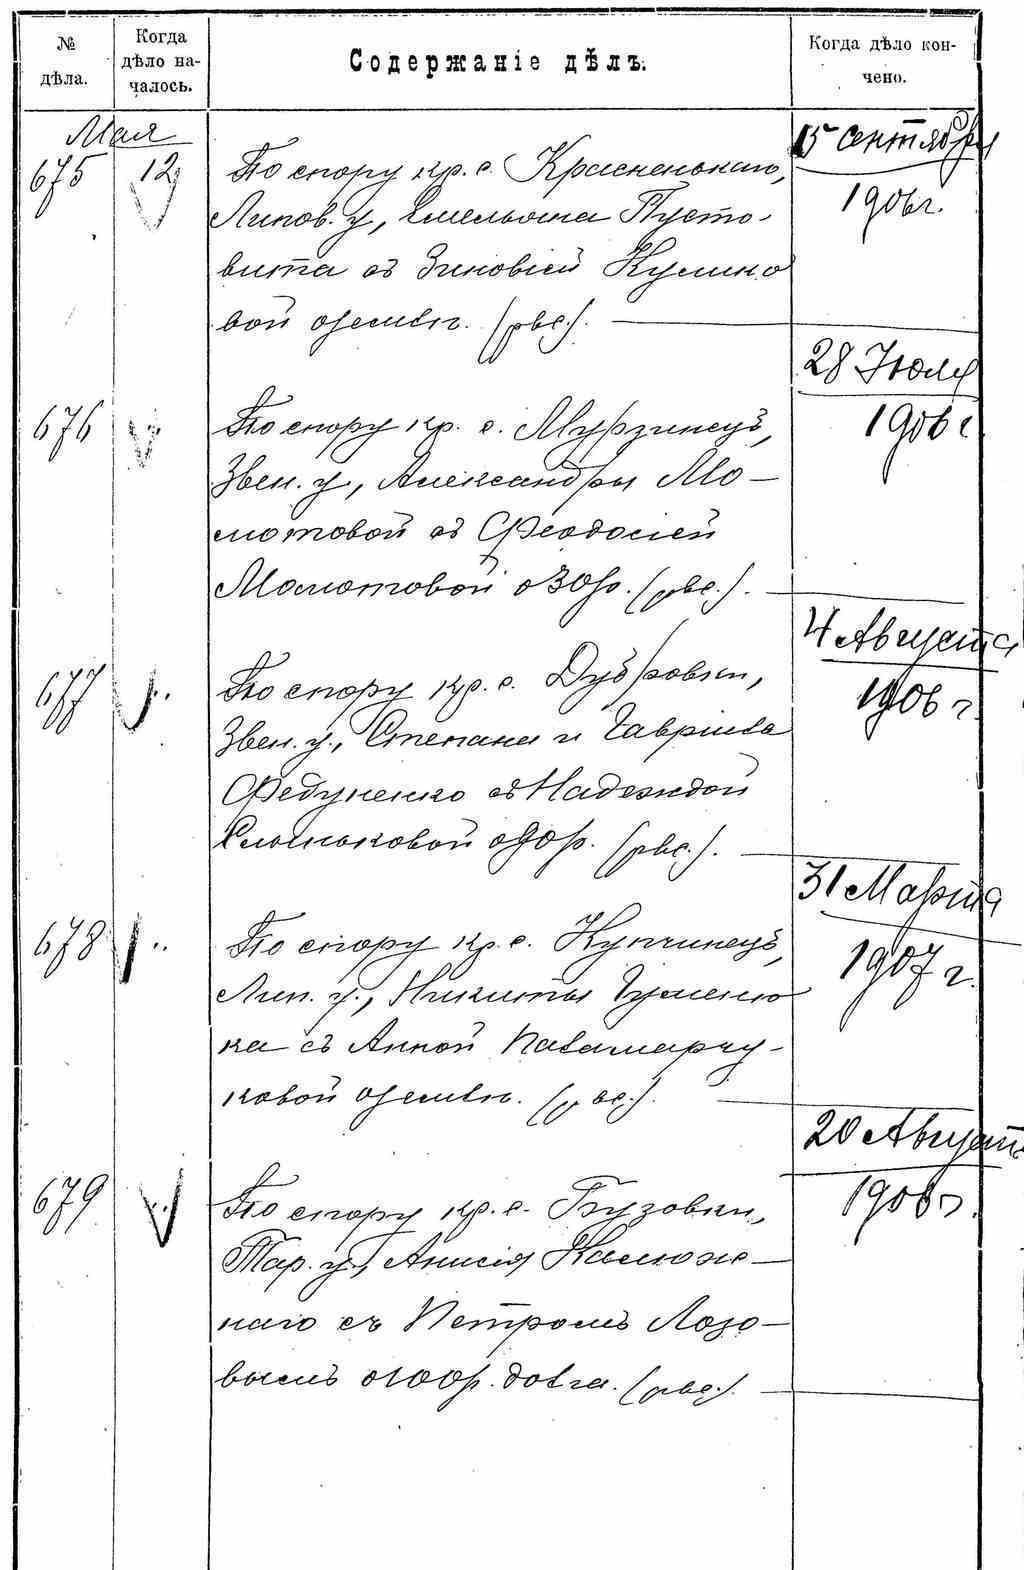 № дѣла.
Когда дѣло на-
чалось.
Содержаніе дѣлъ.
Когда дѣло кон-
чено.
Мая
675
12
По спору кр. с. Красненькаго,
Липов. у., Емельяна Пусто-
вита съ Зиновіей Кулико
вой о землѣ.
15 Сентября
1906 г.
676
По спору кр. с. Мурзинецъ,
Звен. у., Александры Мо-
мотовой съ Феодосіей
Момотовой о 30 р.
28 Іюля
1906 г.
677
По спору кр. с. Дубровки,
Звен. у., Степана и Гавріила
Федуненко съ Надеждой
о 90 р.
4 Августа
1906 г.
678
По спору кр. с. Купчинецъ,
Лип. у., Никиты Гуменю
ка съ Анной Паламарчу-
ковой о землѣ.
31 Марта
1907 г.
679
По спору кр. с. Бузовки,
Тар. у., Анисія Калюж-
наго съ Петромъ Лозо-
вымъ о 100 р. долга.
20 Августа
1906 г.